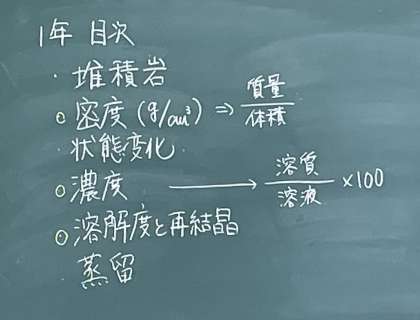 1年 目次
・堆積岩
○密度(g/cm³) ⇒ 質量/体積
・状態変化
○濃度 → 溶質/溶液 ×100
○溶解度と再結晶
・蒸留